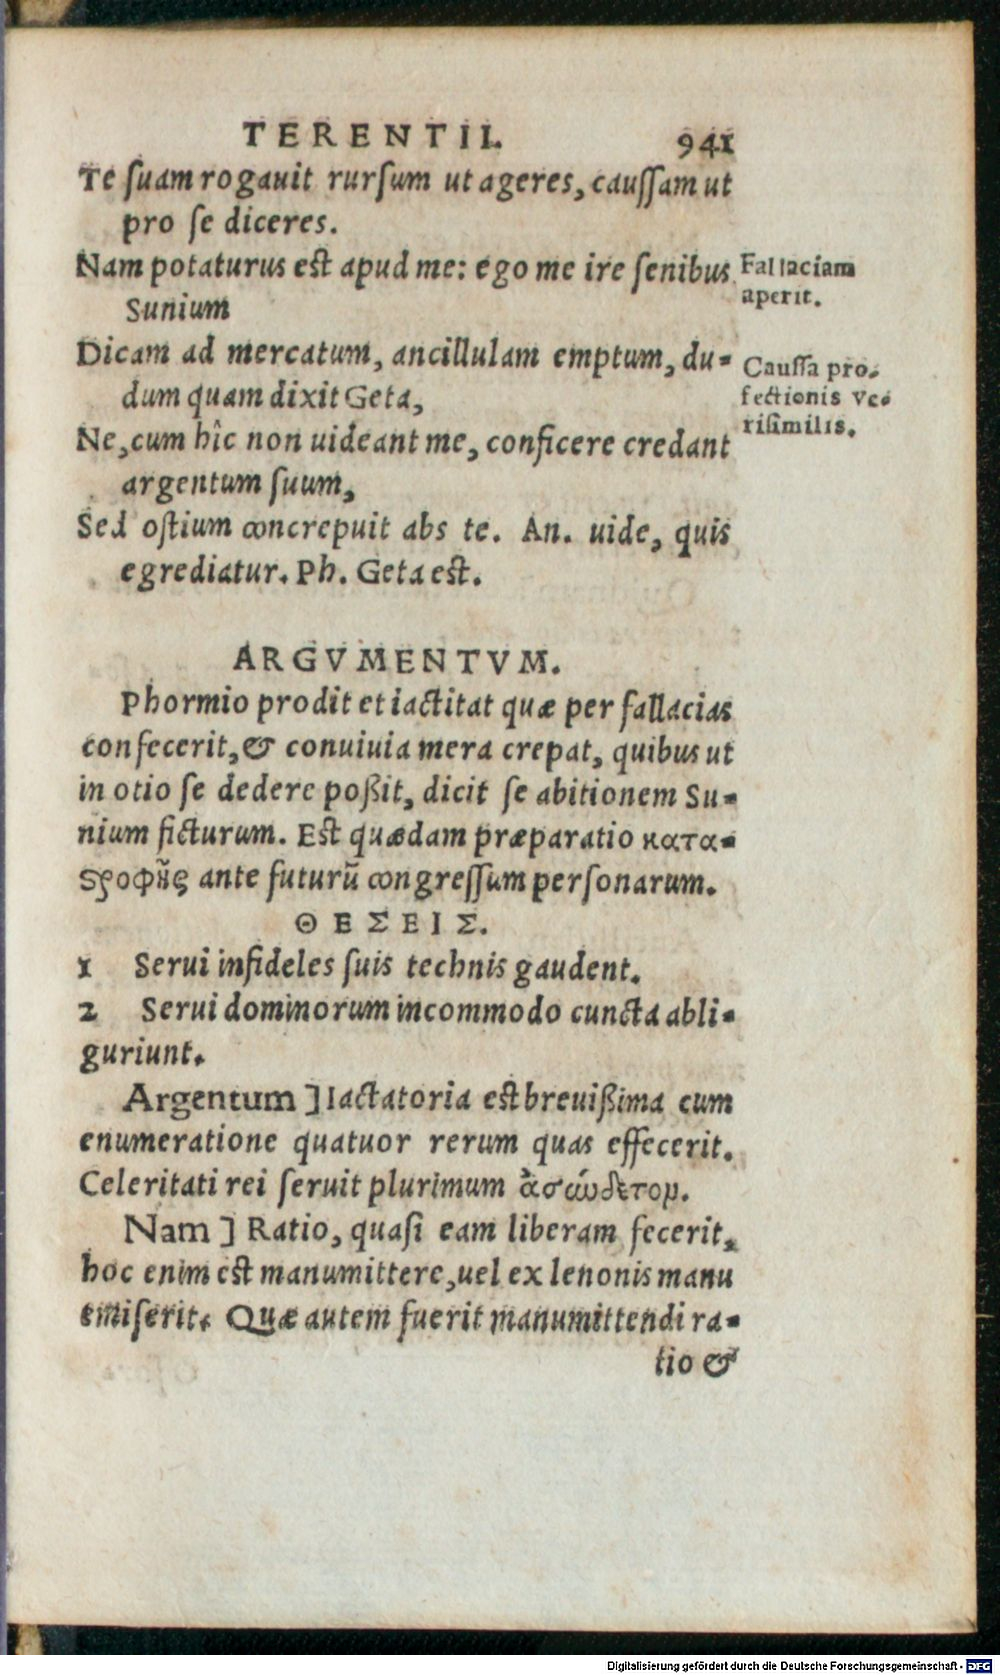 TERENTII. 941
Te suam rogauit rursum ut ageres, caussam ut
pro se diceres.
Nam potaturus est apud me: ego me ire senibus
Fallaciam
aperit.
Sunium
Dicam ad mercatum, ancillulam emptum, du-
dum quam dixit Geta,
Caussa pro-
fectionis ve-
risimilis.
Ne, cum hîc non uideant me, conficere credant
argentum suum,
Sed ostium concrepuit abs te. An. uide, quis
egrediatur. Ph. Geta est.
ARGVMENTVM.
Phormio prodit et iactitat quæ per fallacias
confecerit, & conuiuia mera crepat, quibus ut
in otio se dedere poßit, dicit se abitionem Su-
nium ficturum. Est quædam præparatio κατα-
ϛροφῆς ante futurũ congressum personarum.
ΘΕΣΕΙΣ.
1 Serui infideles suis technis gaudent.
2 Serui dominorum incommodo cuncta abli-
guriunt.
Argentum ] Iactatoria est breuißima cum
enumeratione quatuor rerum quas effecerit.
Celeritati rei seruit plurimum ἀσώδετον.
Nam ] Ratio, quasi eam liberam fecerit,
hoc enim est manumittere, uel ex lenonis manu
emiserit. Quæ autem fuerit manumittendi ra-
tio &
Digitalisierung gefördert durch die Deutsche Forschungsgemeinschaft - DFG